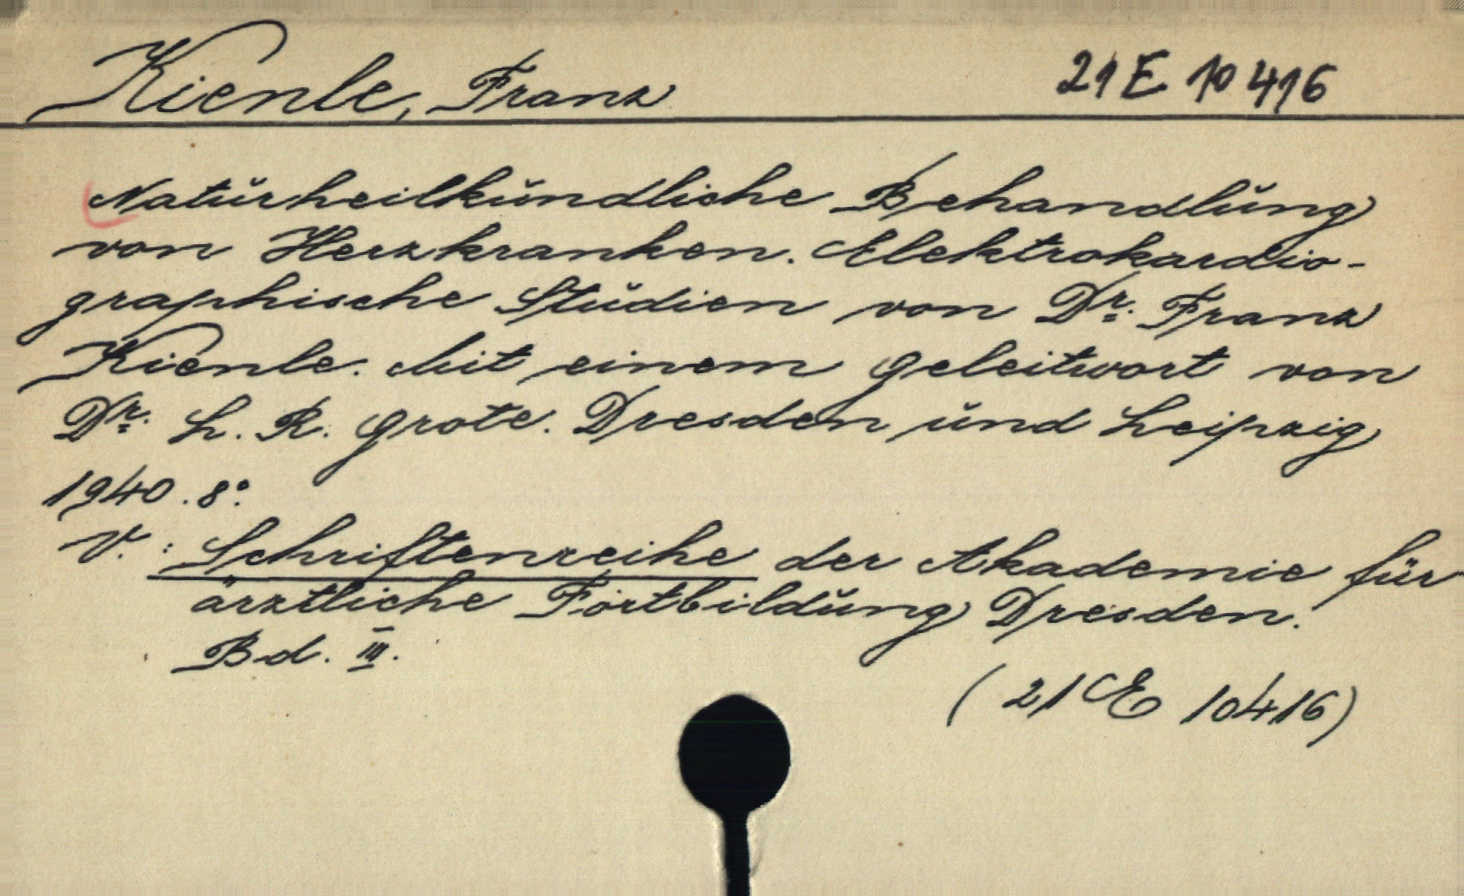 Kienle, Franz 21 E 10 416
Naturheilkundliche Behandlung
von Herzkranken. Elektrokardio-
graphische Studien von Dr. Franz
Kienle. Mit einem Geleitwort von
Dr. L. R. Grote. Dresden und Leipzig
1940. 8°.
V.: Schriftenreihe der Akademie für
ärztliche Fortbildung Dresden.
Bd. III.
(21 E 10416)